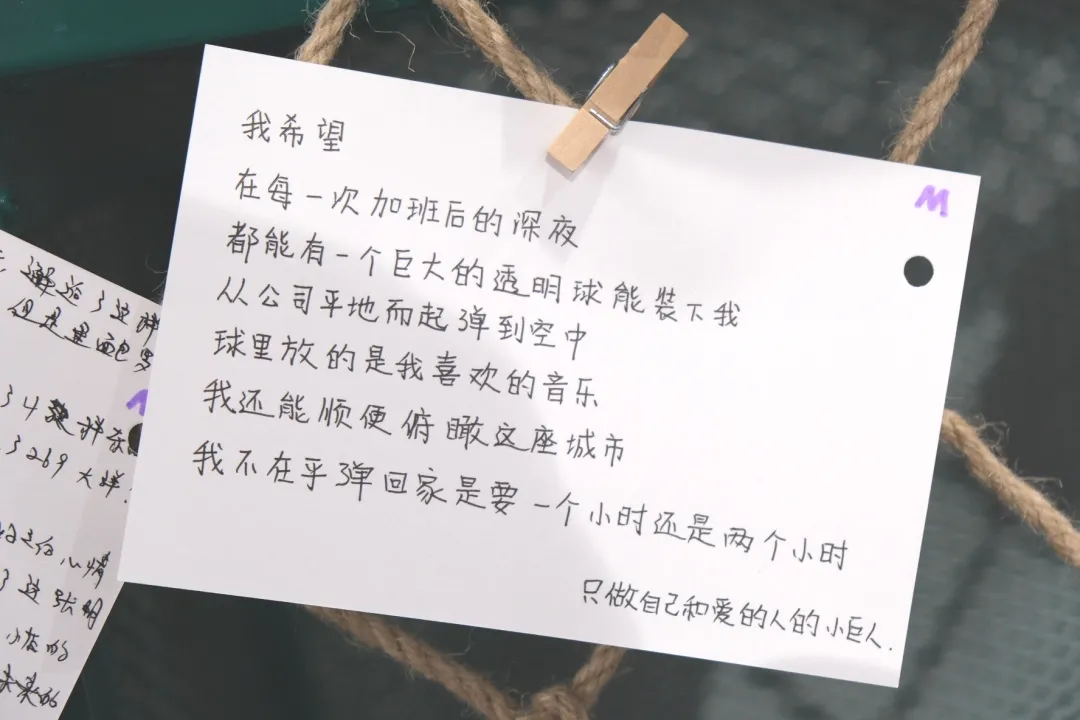 我希望
在每一次加班后的深夜
都能有一个巨大的透明球能装下我
从公司平地而起弹到空中
球里放的是我喜欢的音乐
我还能顺便俯瞰这座城市
我不在乎弹回家是要一个小时还是两个小时
只做自己和爱的人的小巨人.
M
3269大样.
心情
了这张明